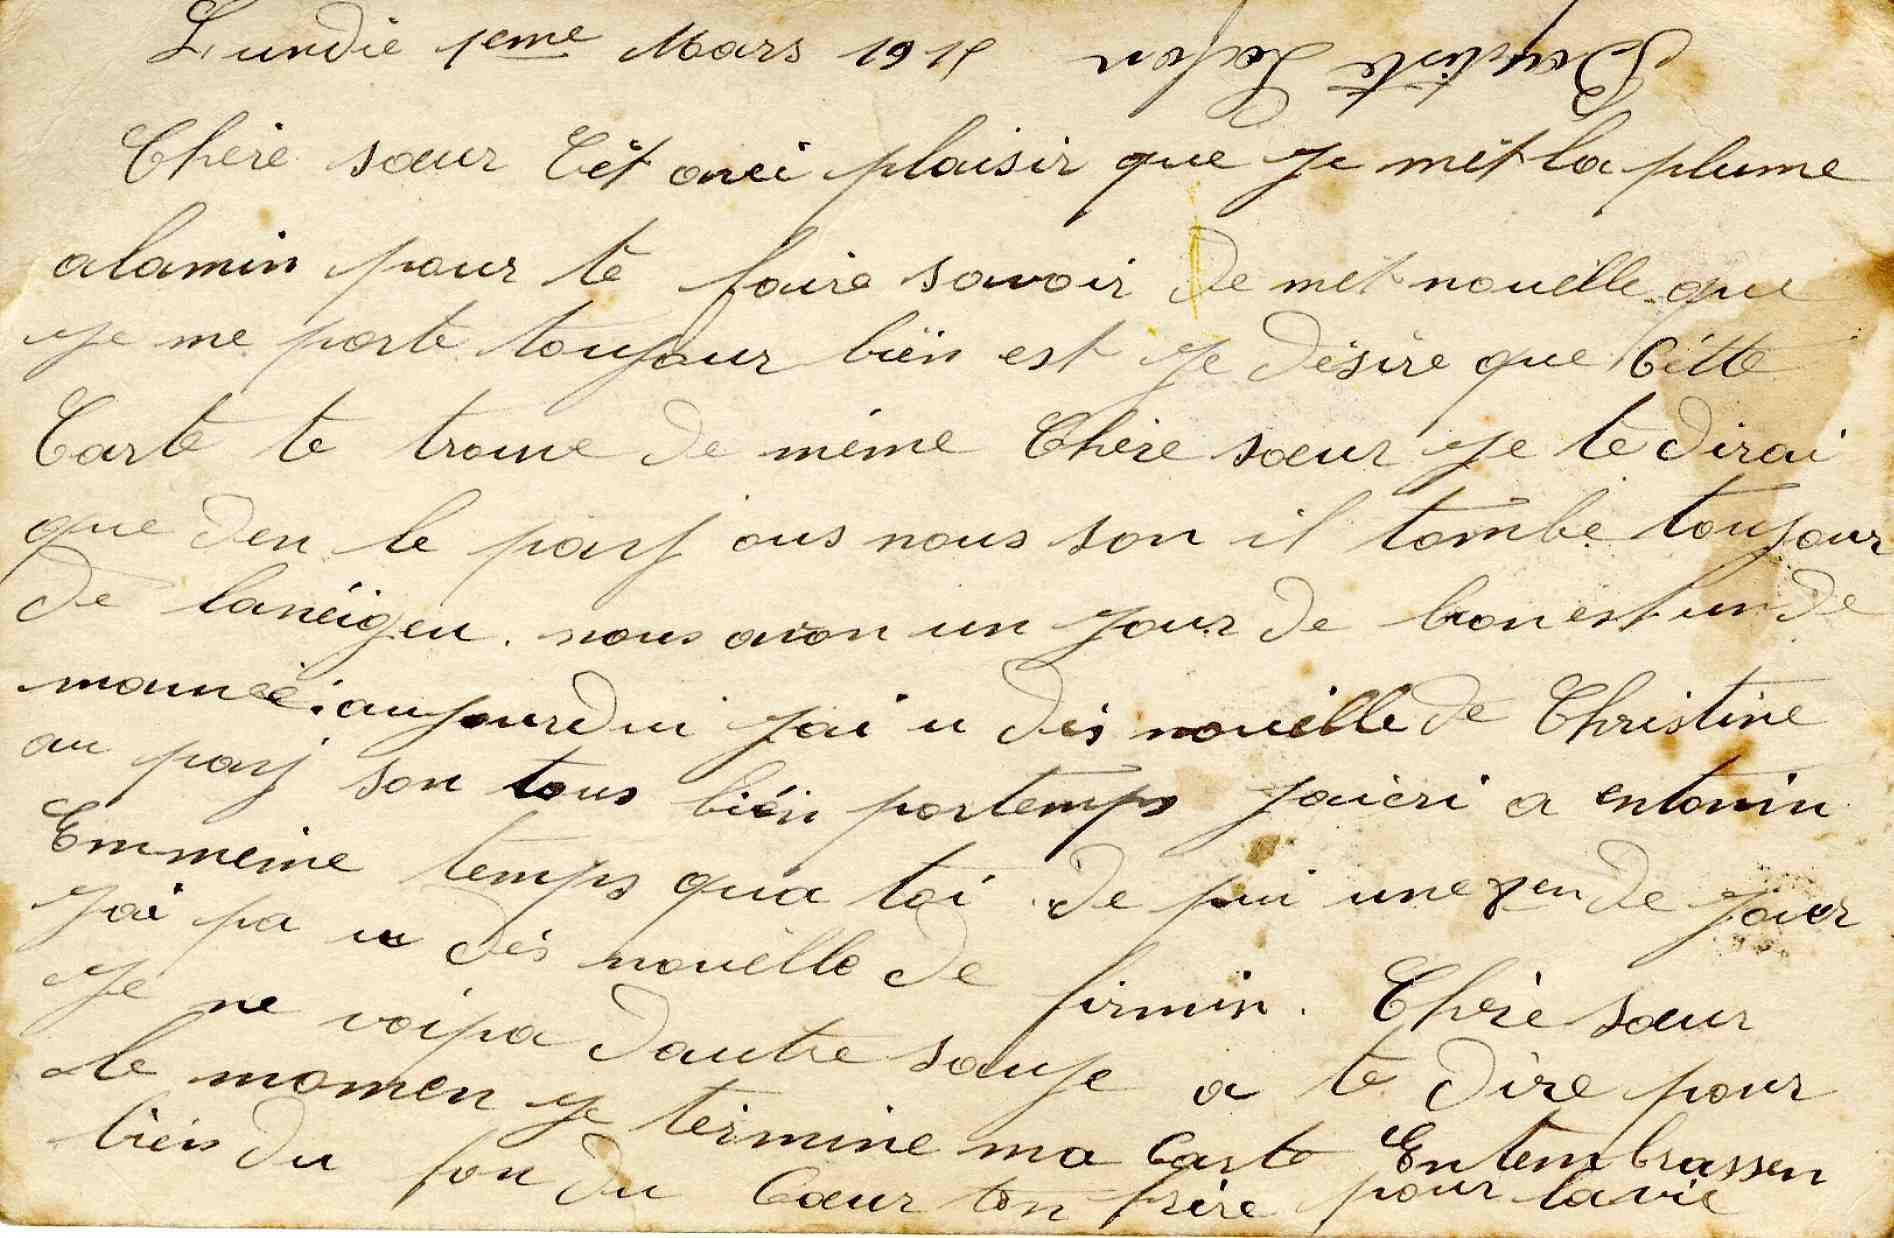 Lundie 1eme Mars 1915 Baptiste Lafon
Chère sœur Cèt avéi plaisir que je mèt la plume
alamin pour te faire savoir de mèt nouvèlle que
je me porte toujour bièn est je désire que Cètte
Carte te trouve de mème Chère sœur je te dirai
que den le payj ous nous son il tombe toujour
de lanéigeu. nous avon un jour de bon est un de
mauvéé. aujourdui jai u dès nouvèlle de Christine
au payj son tous bièn portemps jaiècri a entonin
Emmème temps qua toi de pui une peu de jour
jai pa u dès nouvèlle de firmin. Chère sœur
je ne voipa dautre sauje a te dire pour
le momen je tèrmine ma Carte Entembrassen
bièn du fon du Cœur ton frère pour lavie